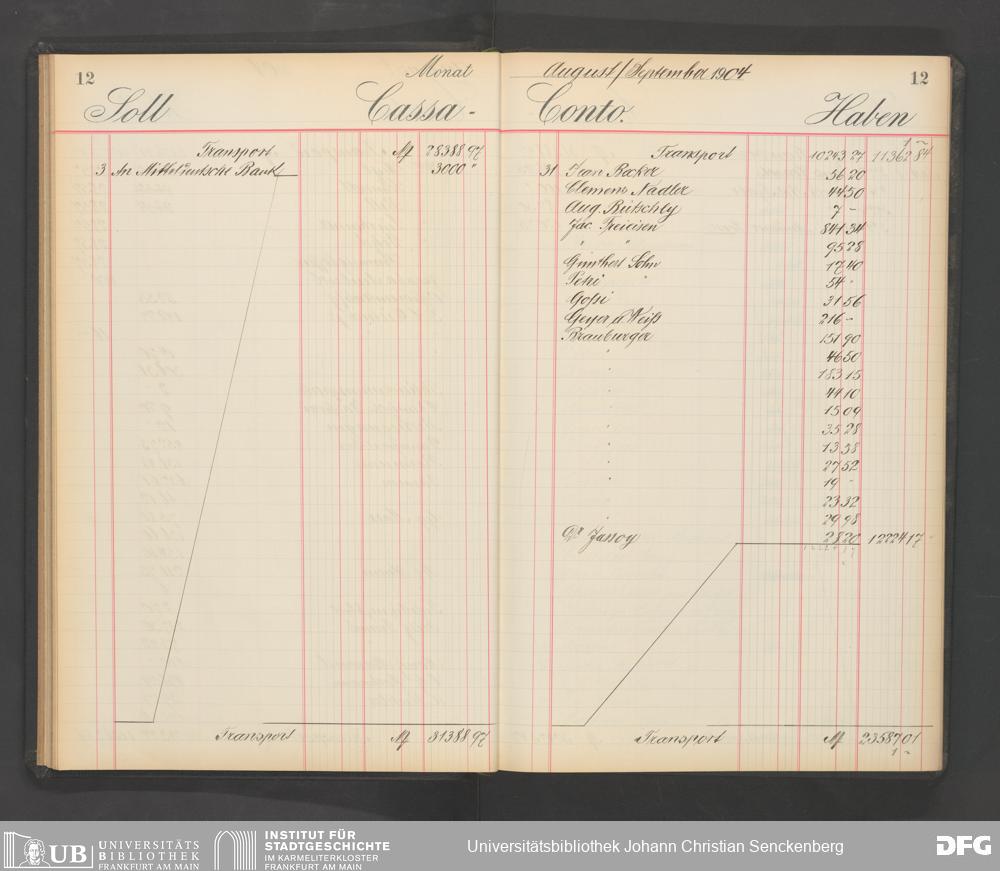 12
Monat
Soll Cassa-
Transport M 28388 97
3 An Mitteldeutsche Bank 3000 "
Transport M 31388 97
August/September 1904
12
Conto. Haben
1 ~
Transport 10243 27 11362 84
31 Jean Becker 56 20
Clemens Nadler 44 50
Aug. Bütschly 7 -
Jac. Freieisen 841 34
" " 95 28
Günther Sohn 17 40
Petri " 54 -
Gossi 31 56
Geyer u Weiss 216 -
Brauburger 151 90
" 46 50
" 183 15
" 44 10
" 15 09
" 35 28
" 13 38
" 27 52
" 19 -
23 32
" 29 98
Dr Jassoy 28 20 12224 17
Transport M 23587 01
1 ~
UB UNIVERSITÄTS
BIBLIOTHEK
FRANKFURT AM MAIN
INSTITUT FÜR
STADTGESCHICHTE
IM KARMELITERKLOSTER
FRANKFURT AM MAIN
Universitätsbibliothek Johann Christian Senckenberg
DFG